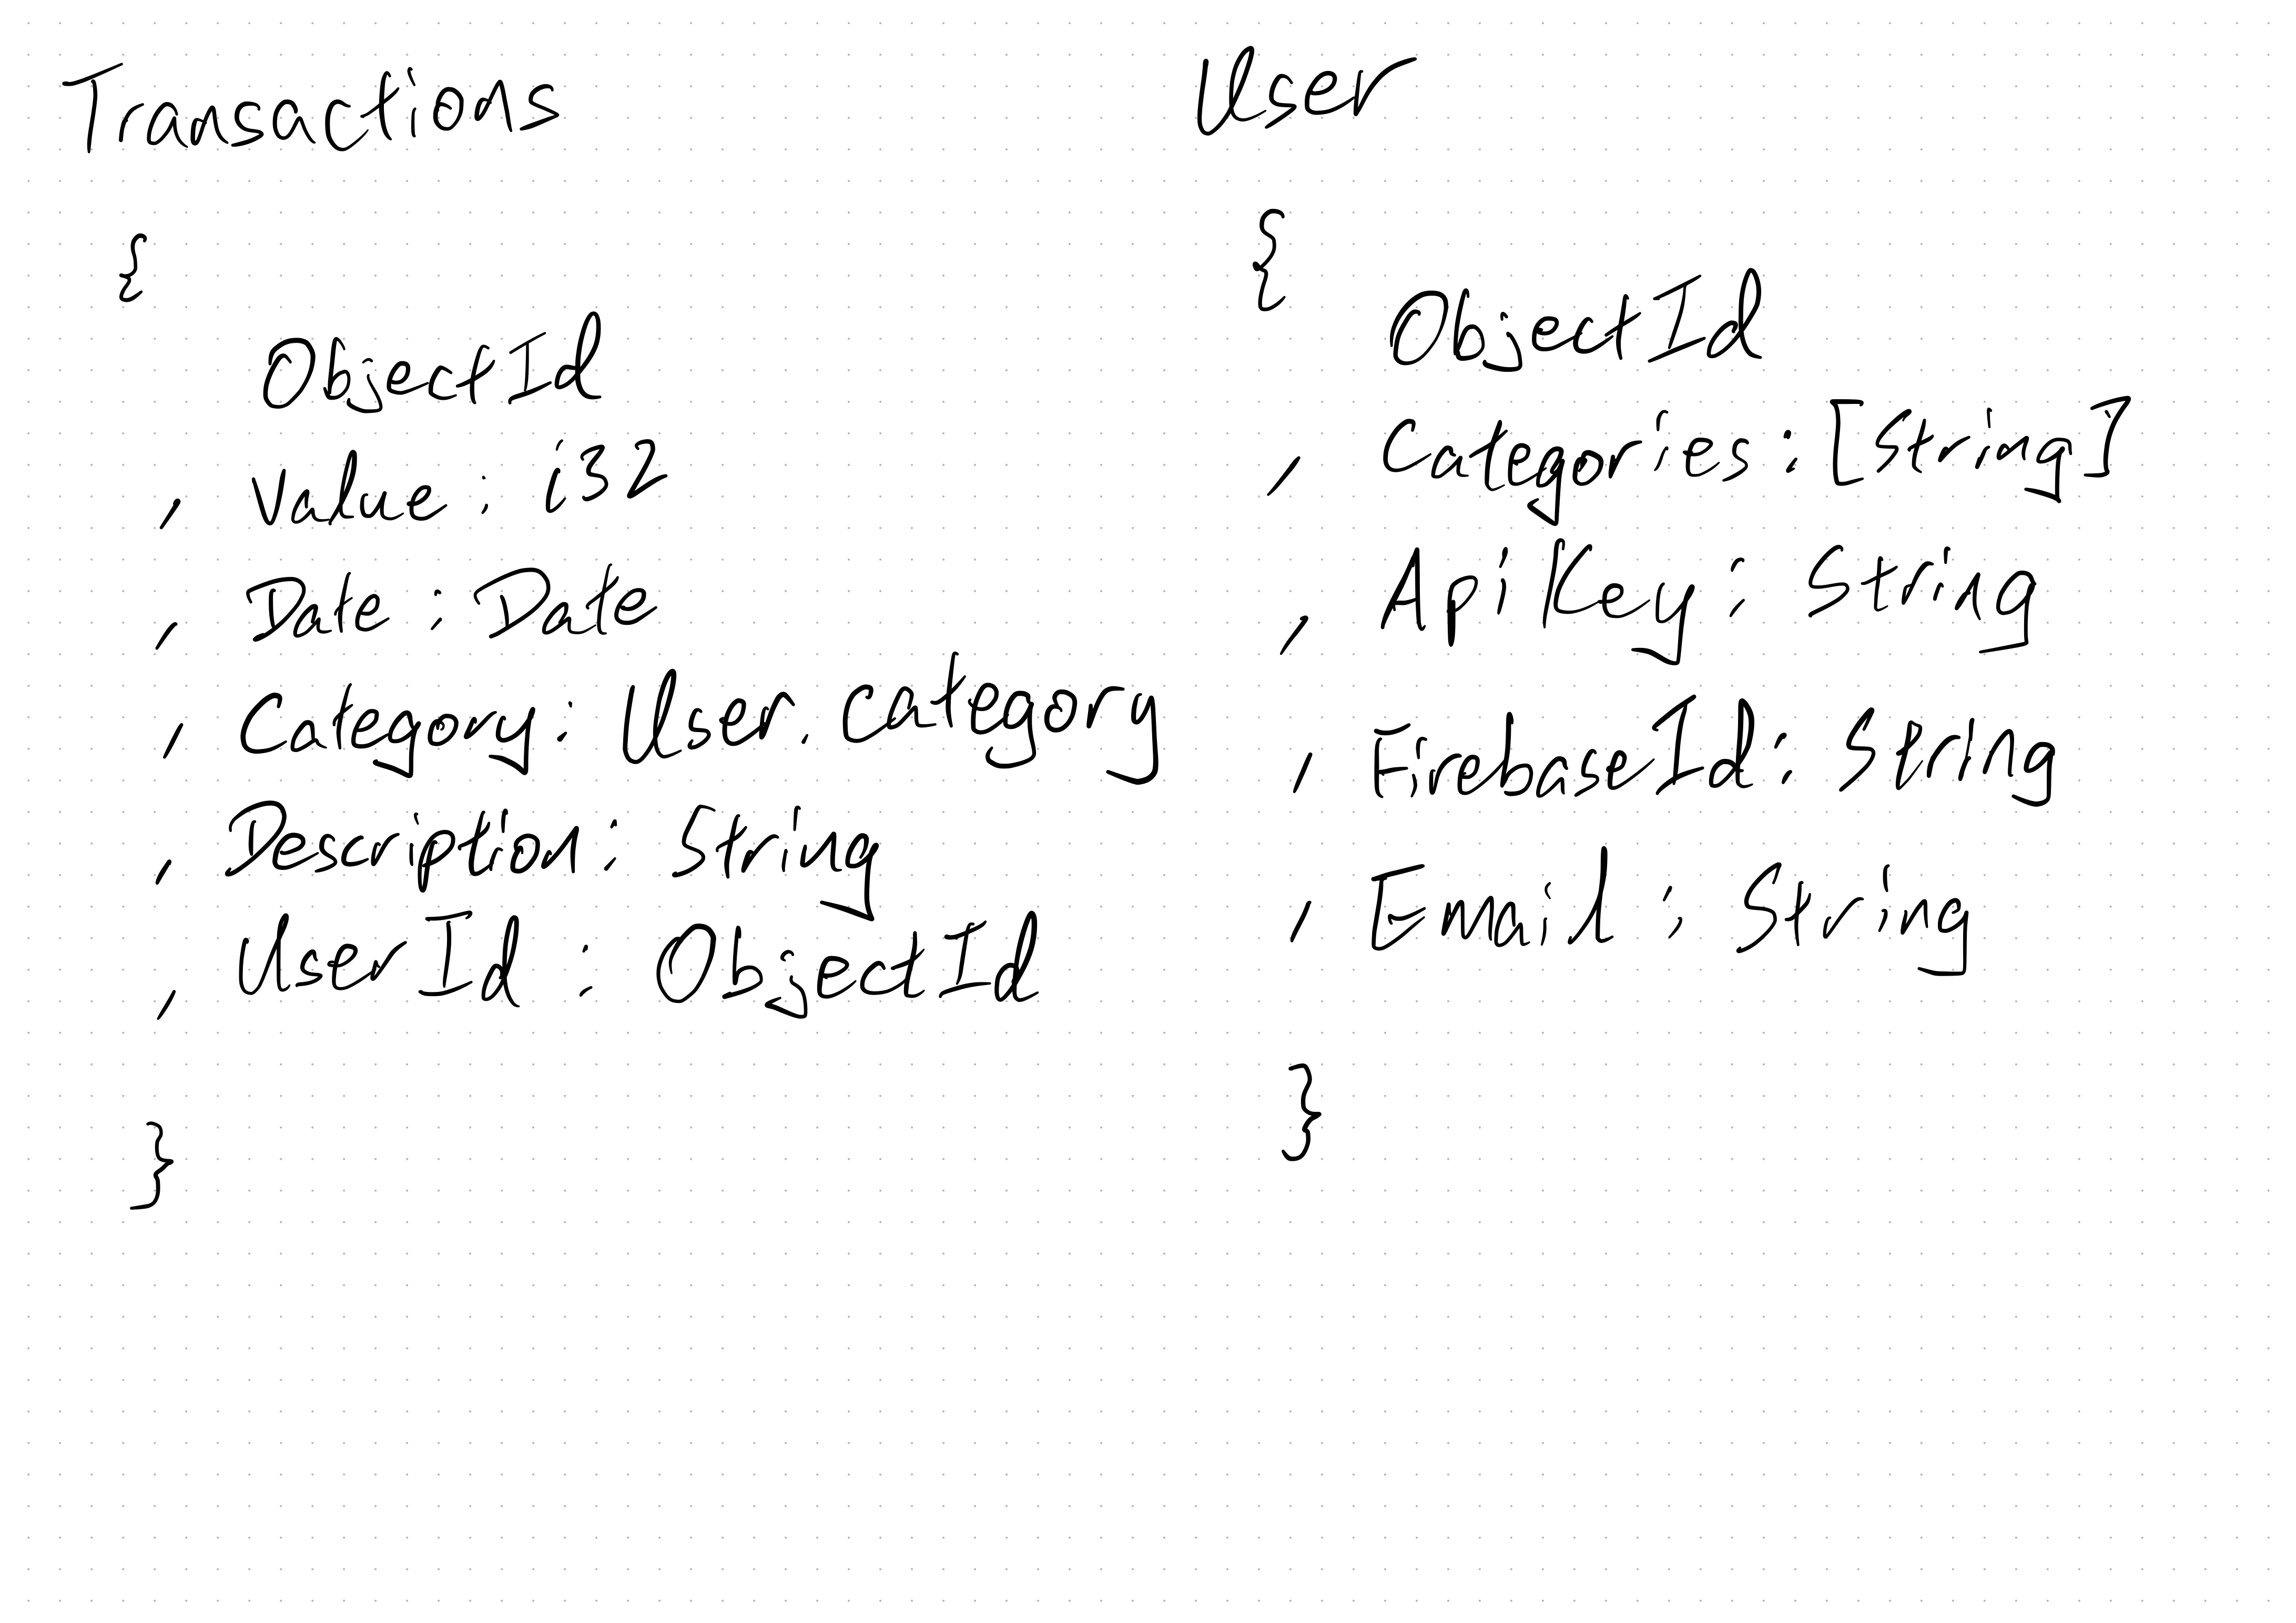 Transactions
{
ObjectId
, Value : i32
, Date : Date
, Category : User.category
, Description : String
, UserId : ObjectId
}
User
{
ObjectId
, Categories : [String]
, ApiKey : String
, FirebaseId : String
, Email : String
}